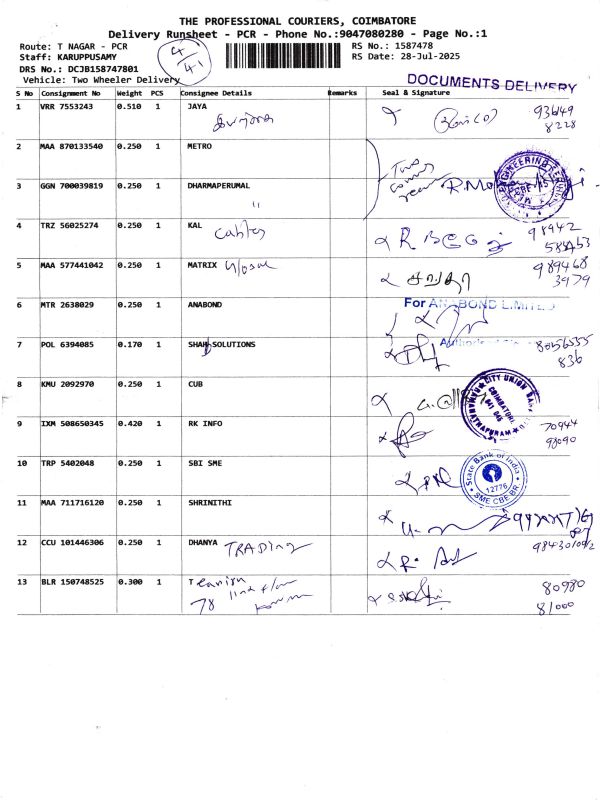 THE PROFESSIONAL COURIERS, COIMBATORE
Delivery Runsheet - PCR - Phone No.:9047080280 - Page No.:1
Route: T NAGAR - PCR
Staff: KARUPPUSAMY
DRS No.: DCJB158747801
Vehicle: Two Wheeler Delivery
RS No.: 1587478
RS Date: 28-Jul-2025
DOCUMENTS DELIVERY
S No Consignment No Weight PCS Consignee Details Remarks Seal & Signature
1 VRR 7553243 0.510 1 JAYA
2 MAA 870133540 0.250 1 METRO
3 GGN 700039819 0.250 1 DHARMAPERUMAL
"
4 TRZ 56025274 0.250 1 KAL
Cables
98942
5 MAA 577441042 0.250 1 MATRIX
989468
3979
6 MTR 2638029 0.250 1 ANABOND
For ANABOND LIMITED
7 POL 6394085 0.170 1 SHAH SOLUTIONS
836
8 KMU 2092970 0.250 1 CUB
CITY UNION BANK
COIMBATORE
RAMANATHAPURAM
9 IXM 508650345 0.420 1 RK INFO
70944
98090
10 TRP 5402048 0.250 1 SBI SME
State Bank of India
12776
SME CBE BR.
11 MAA 711716120 0.250 1 SHRINITHI
12 CCU 101446306 0.250 1 DHANYA TRADING
13 BLR 150748525 0.300 1 T
78
80980
81000